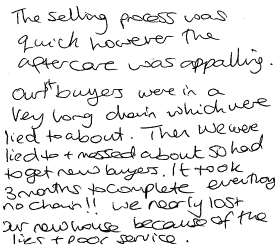 The selling process was
quick however the
aftercare was appalling.
our 1st buyers were in a
very long chain which were
lied to about. Then we were
lied to + messed about so had
to get new buyers. It took
3 months to complete everything
no chain!! we nearly lost
our new house because of the
lies + poor service.